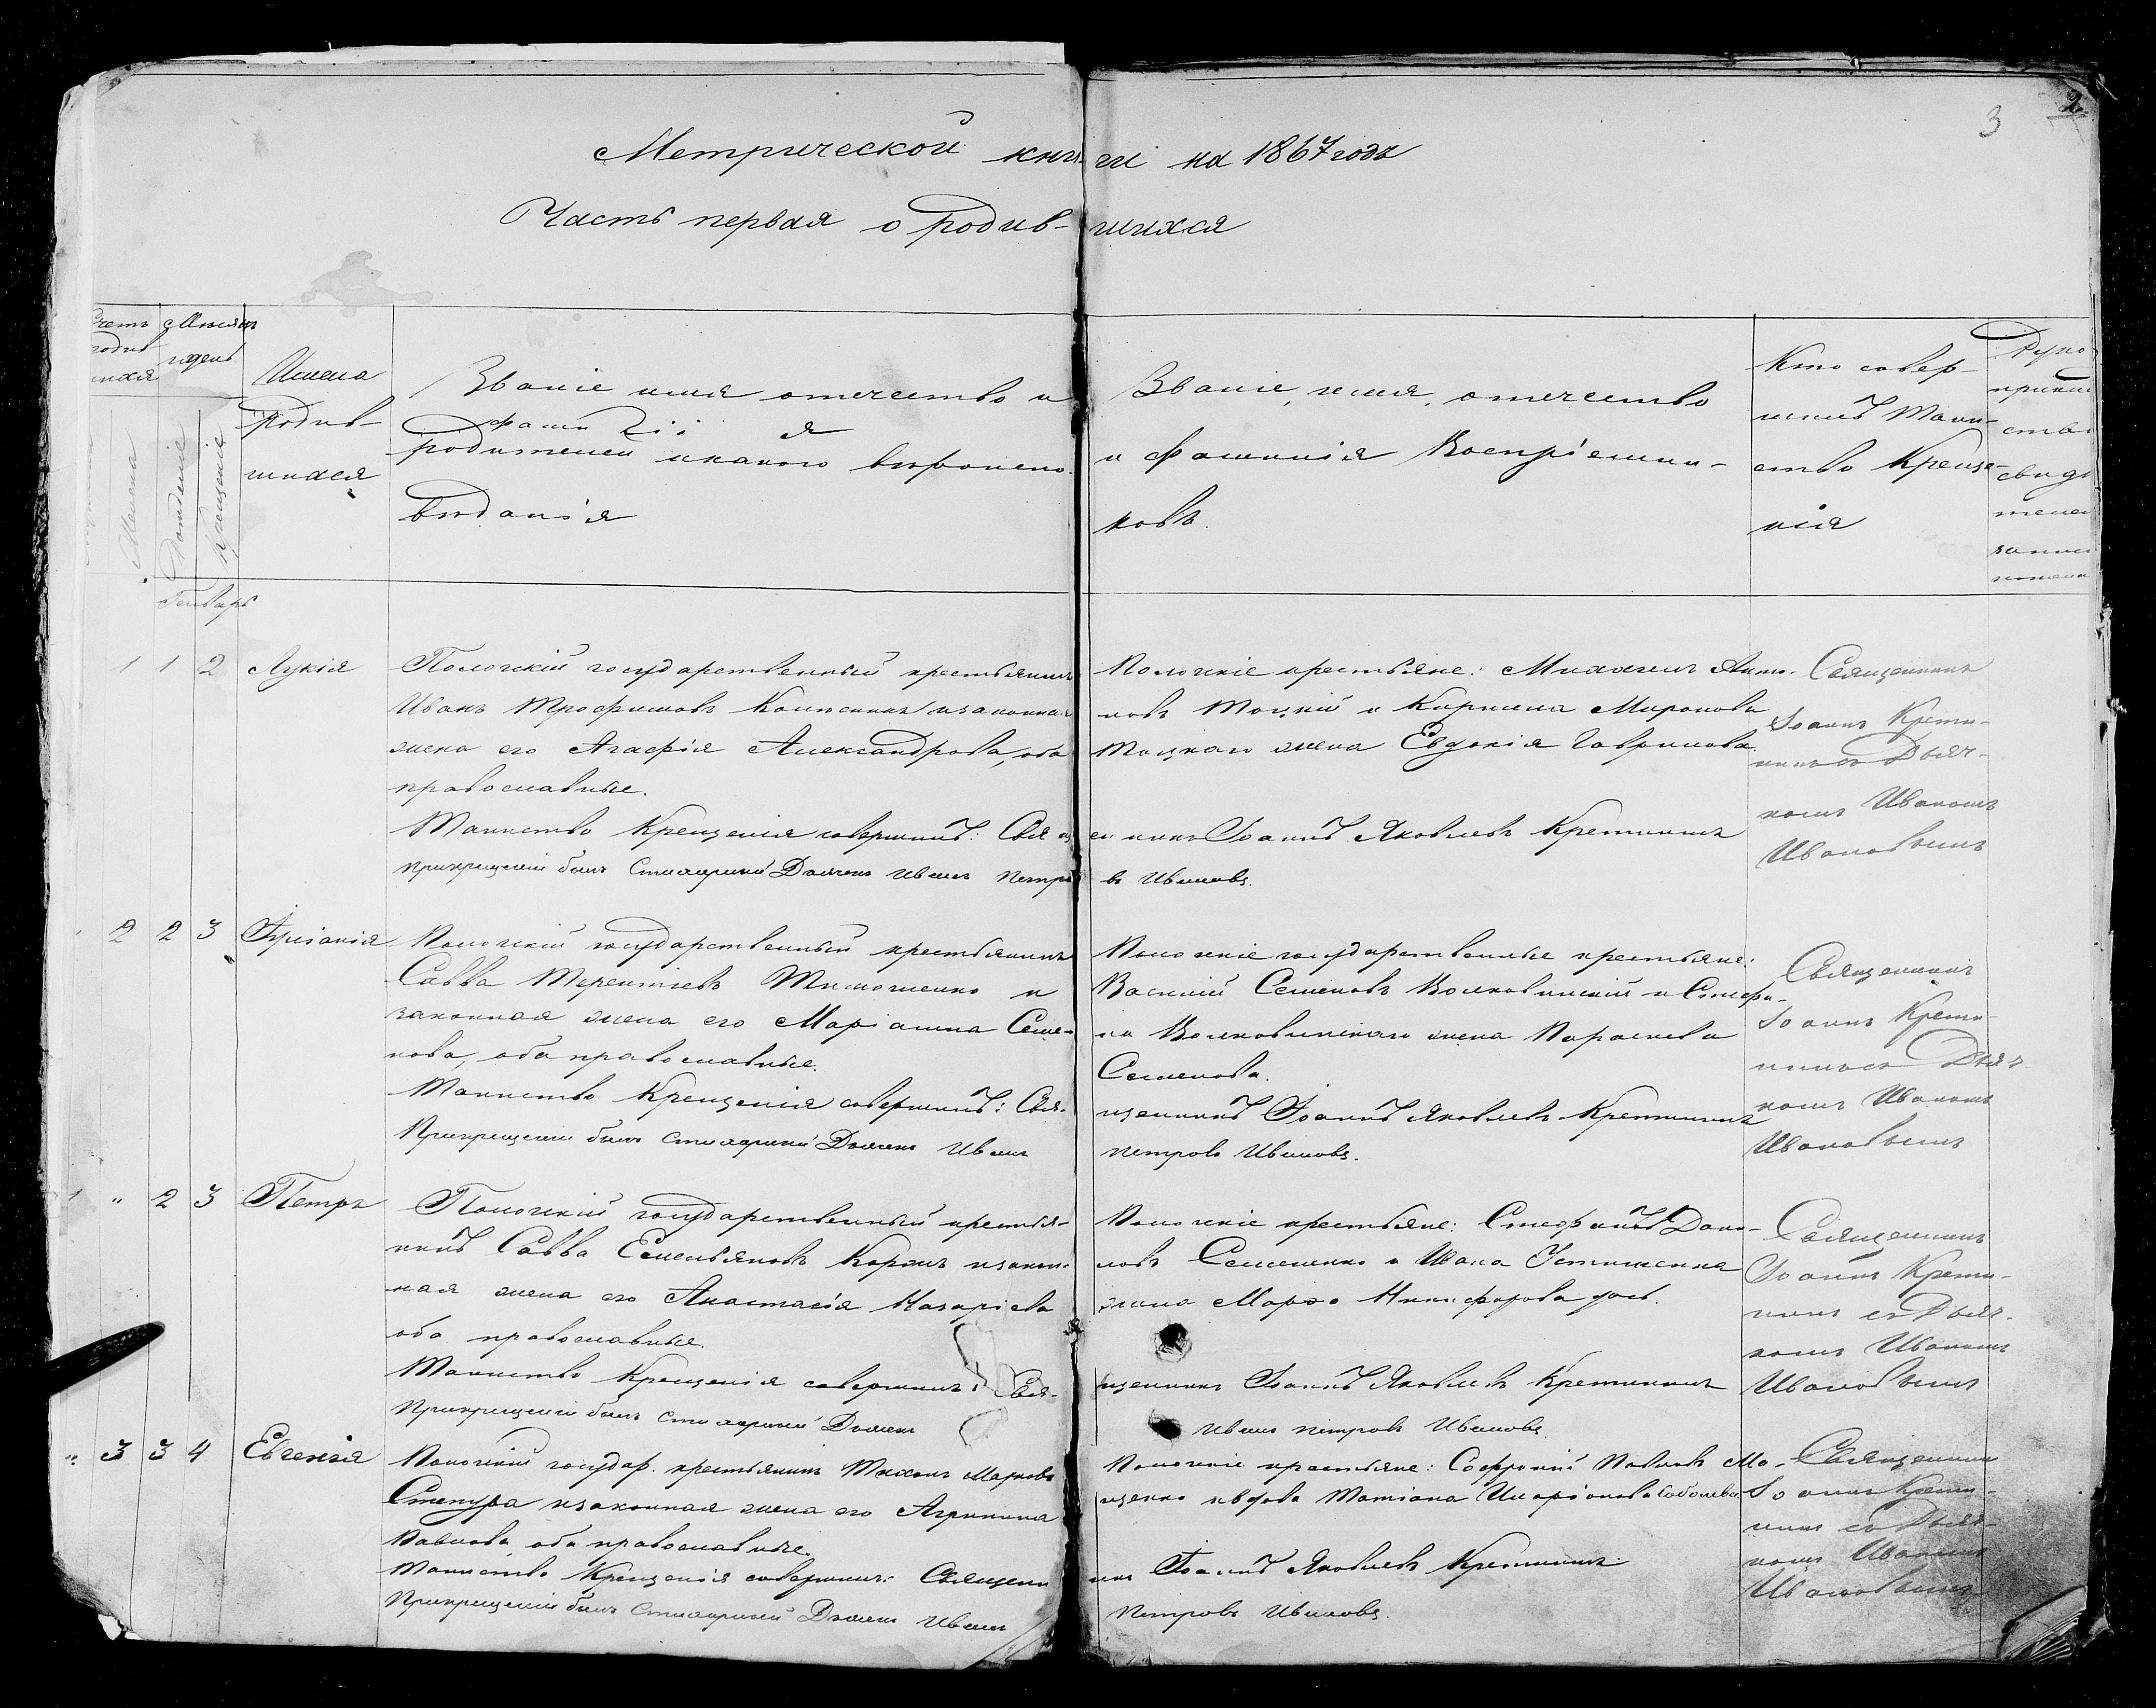 3 2
Метрической книги на 1867 годъ
Часть первая о родив-шихся
Счетъ родив-шихся
Мѣсяцъ и день
Женска
Рожденіе
Крещеніе
Имена
родив-
шихся
Званіе имя отчество и
фамилія
родителей и какого вѣроиспо-
вѣданія
Званіе, имя, отчество
и фамилія Воспріемни-
ковъ.
Кто совер-
шилъ Таин-
ство Креще-
нія
Руко-
прикла
ство
свидѣ
телей
записи
Генварь
1 1 2 Лукія
Пологскій государственный крестьянинъ
Иванъ Трофимовъ и законная
жена его Агафія Александрова, оба
православные.
Таинство Крещенія совершилъ: Свящ
При крещеніи былъ Стихарный Дьячекъ Иванъ Петро
Пологскіе крестьяне: Михаилъ Анто-
новъ Тоцкій и Кирилла Миронова
Тоцкаго жена Евдокія Гаврилова.
енникъ Іоаннъ Яковлевъ Кретининъ
въ Ивановъ.
Священникъ
Іоаннъ Крети-
нинъ съ Дьяч-
комъ Иваномъ
Ивановымъ
2 2 3 Іуліанія
Пологскій государственный крестьянинъ
Савва Терентіевъ Тимошенко и
законная жена его Маріанна Семе-
нова, оба православные.
Таинство Крещенія совершилъ: Свя-
При крещеніи былъ Стихарный Дьячекъ Иванъ
Пологскіе государственные крестьяне:
Василій Семеновъ Волковинскій и Стефа-
на Волковинскаго жена Параскева
Семенова.
щенникъ Іоаннъ Яковлевъ Кретининъ
Петровъ Ивановъ.
Священникъ
Іоаннъ Крети-
нинъ съ Дьяч-
комъ Иваномъ
Ивановымъ
1 " 2 3 Петръ
Пологскій государственный крестья-
нинъ Савва Емельяновъ Коржъ и закон-
ная жена его Анастасія Назаріева
оба православные.
Таинство Крещенія совершилъ: Свя-
При крещеніи былъ Стихарный Дьячекъ
Пологскіе крестьяне: Стефанъ Дани-
ловъ Семененко и Ивана Устименка
жена Марфа Никифорова
щенникъ Іоаннъ Яковлевъ Кретининъ
Иванъ Петровъ Ивановъ.
Священникъ
Іоаннъ Крети-
нинъ съ Дьяч-
комъ Иваномъ
Ивановымъ
" 3 3 4 Евгенія
Пологскій государ. крестьянинъ Тихонъ Марковъ
Степура и законная жена его Агрипина
Павлова, оба православные.
Таинство Крещенія совершилъ: Священн
При крещеніи былъ Стихарный Дьячекъ Иванъ
Пологскіе крестьяне: Софроній Павловъ Мо-
щенко и вдова Татіана Иларіонова Соболева
икъ Іоаннъ Яковлевъ Кретининъ.
Петровъ Ивановъ.
Священникъ
Іоаннъ Крети-
нинъ съ Дьяч-
комъ Иваномъ
Ивановымъ